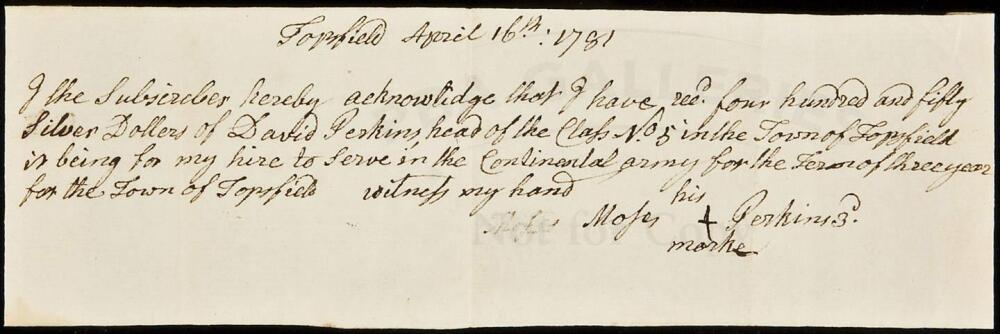 Topsfield April 16th: 1781
I the Subscriber hereby acknowlidge that I have recd. four hundred and fifty
Silver Dollers of David Perkins head of the Class No 5 in the Town of Topsfield
it being for my hire to Serve in the Continental army for the Term of three year
for the Town of Topsfield witness my hand
his
Moses + Perkins 3d.
marke